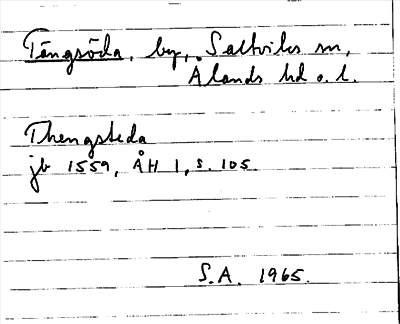 Tängsöda, by, Saltviks sn,
Ålands hd o. l.
Thengsteda
jb 1559, ÅH 1, s. 105.
S.A. 1965.